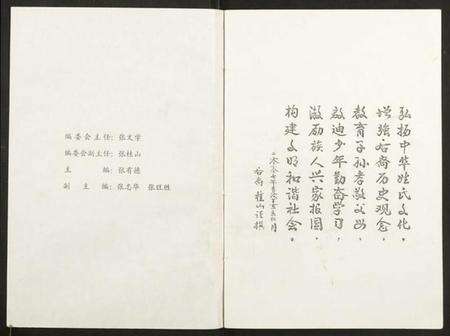 编委会主任:张文学
编委会副主任:张桂山
主 编:张有德
副 主 编:张志华 张旺胜
弘扬中华姓氏文化,
增强后裔历史观念,
教育子孙孝敬父母,
启迪少年勤奋学习,
激励族人兴家报国,
构建文明和谐社会。